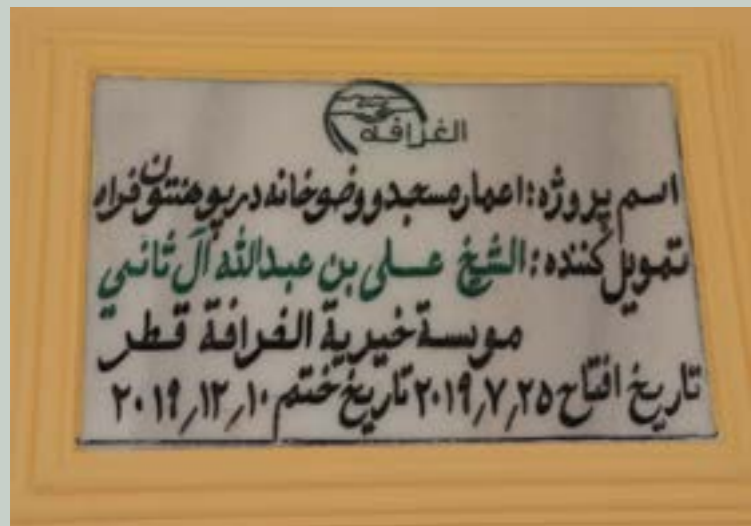 الغرافه
اسم پروژه: اعمار مسجد و وضوخانه در پوهنتون فراه
تمویل کننده: الشیخ علی بن عبدالله آل ثاني
موسسة خيرية الغرافة قطر
تاریخ افتاح ٢٠١٩٫٧٫٢٥ تاریخ ختم ٢٠١٩٫١٢٫١٠